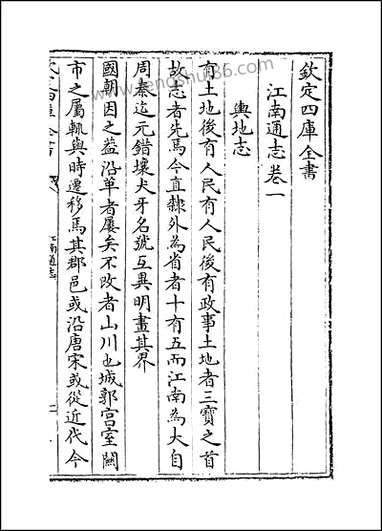 欽定四庫全書
江南通志卷一
輿地志
有土地後有人民有人民後有政事土地者三寶之首
故志者先焉今直隸外為省者十有五而江南為大自
周秦迄元錯壤犬牙名號互異明畫其界
國朝因之益沿革者屢矣不改者山川也城郭宫室闕
市之屬軌與時遷移焉其郡邑或沿唐宋或從近代今
江南通志
一